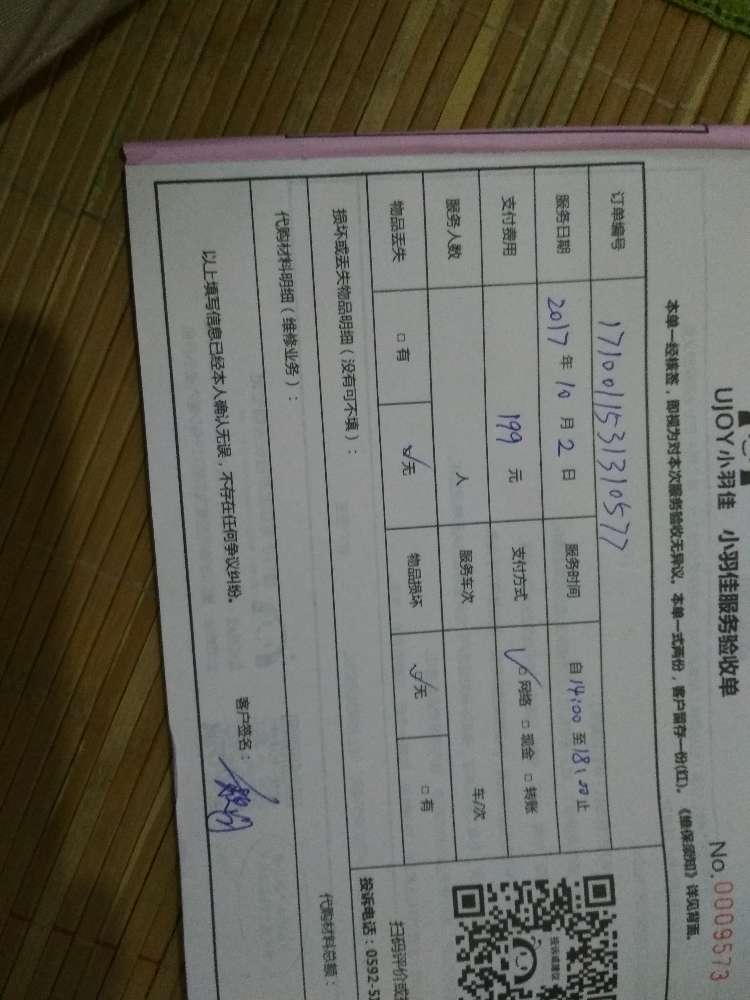 UJOY小羽佳 小羽佳服务验收单
No.0009573
本单一经核签，即视为对本次服务验收无异议。本单一式两份，客户留存一份(红)。《维保须知》详见背面。
订单编号 171001153131057
服务日期 2017 年 10 月 2 日 服务时间 自 14:00 至 18:00 止
支付费用 199 元 支付方式 ☑网络 □现金 □转账
服务人数 人 服务车次 车/次
物品丢失 □有 ☑无 物品损坏 ☑无 □有
损坏或丢失物品明细（没有可不填）：
代购材料明细（维修业务）： 代购材料总额：
以上填写信息已经本人确认无误，不存在任何争议纠纷。 客户签名：
投诉或建议
扫码评价或
投诉电话：0592-5